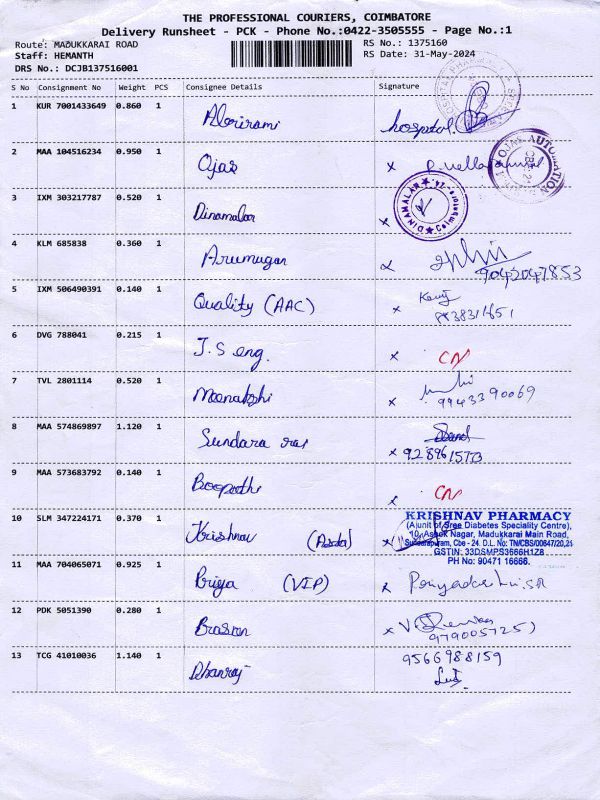 THE PROFESSIONAL COURIERS, COIMBATORE
Delivery Runsheet - PCK - Phone No.:0422-3505555 - Page No.:1
Route: MADUKKARAI ROAD RS No.: 1375160
Staff: HEMANTH RS Date: 31-May-2024
DRS No.: DCJB137516001
S No Consignment No Weight PCS Consignee Details Signature
1 KUR 7001433649 0.860 1 Abirami hospital
2 MAA 104516234 0.950 1 Ojas x
OJAS AUTOMATION
CBE-21
3 IXM 303217787 0.520 1 Dinamalar x
DINAMALAR Coimbatore
4 KLM 685838 0.360 1 Arumugam x
9042047853
5 IXM 506490391 0.140 1 Quality (AAC) x
6 DVG 788041 0.215 1 J.S eng. x CN
7 TVL 2801114 0.520 1 Meenakshi x
9943390069
8 MAA 574869897 1.120 1 Sundara raj
x
9 MAA 573683792 0.140 1 Boopathi x CN
10 SLM 347224171 0.370 1 Krishnav x
KRISHNAV PHARMACY
(A unit of Sree Diabetes Speciality Centre),
10, Ashok Nagar, Madukkarai Main Road,
Sundarapuram, Cbe - 24. D.L. No: TN/CBS/00647/20,21
GSTIN: 33DSMPS3666H1Z8
PH No: 90471 16666.
11 MAA 704065071 0.925 1 Priya (VIP) x
12 PDK 5051390 0.280 1 x
13 TCG 41010036 1.140 1 Dhanraj 9566988159